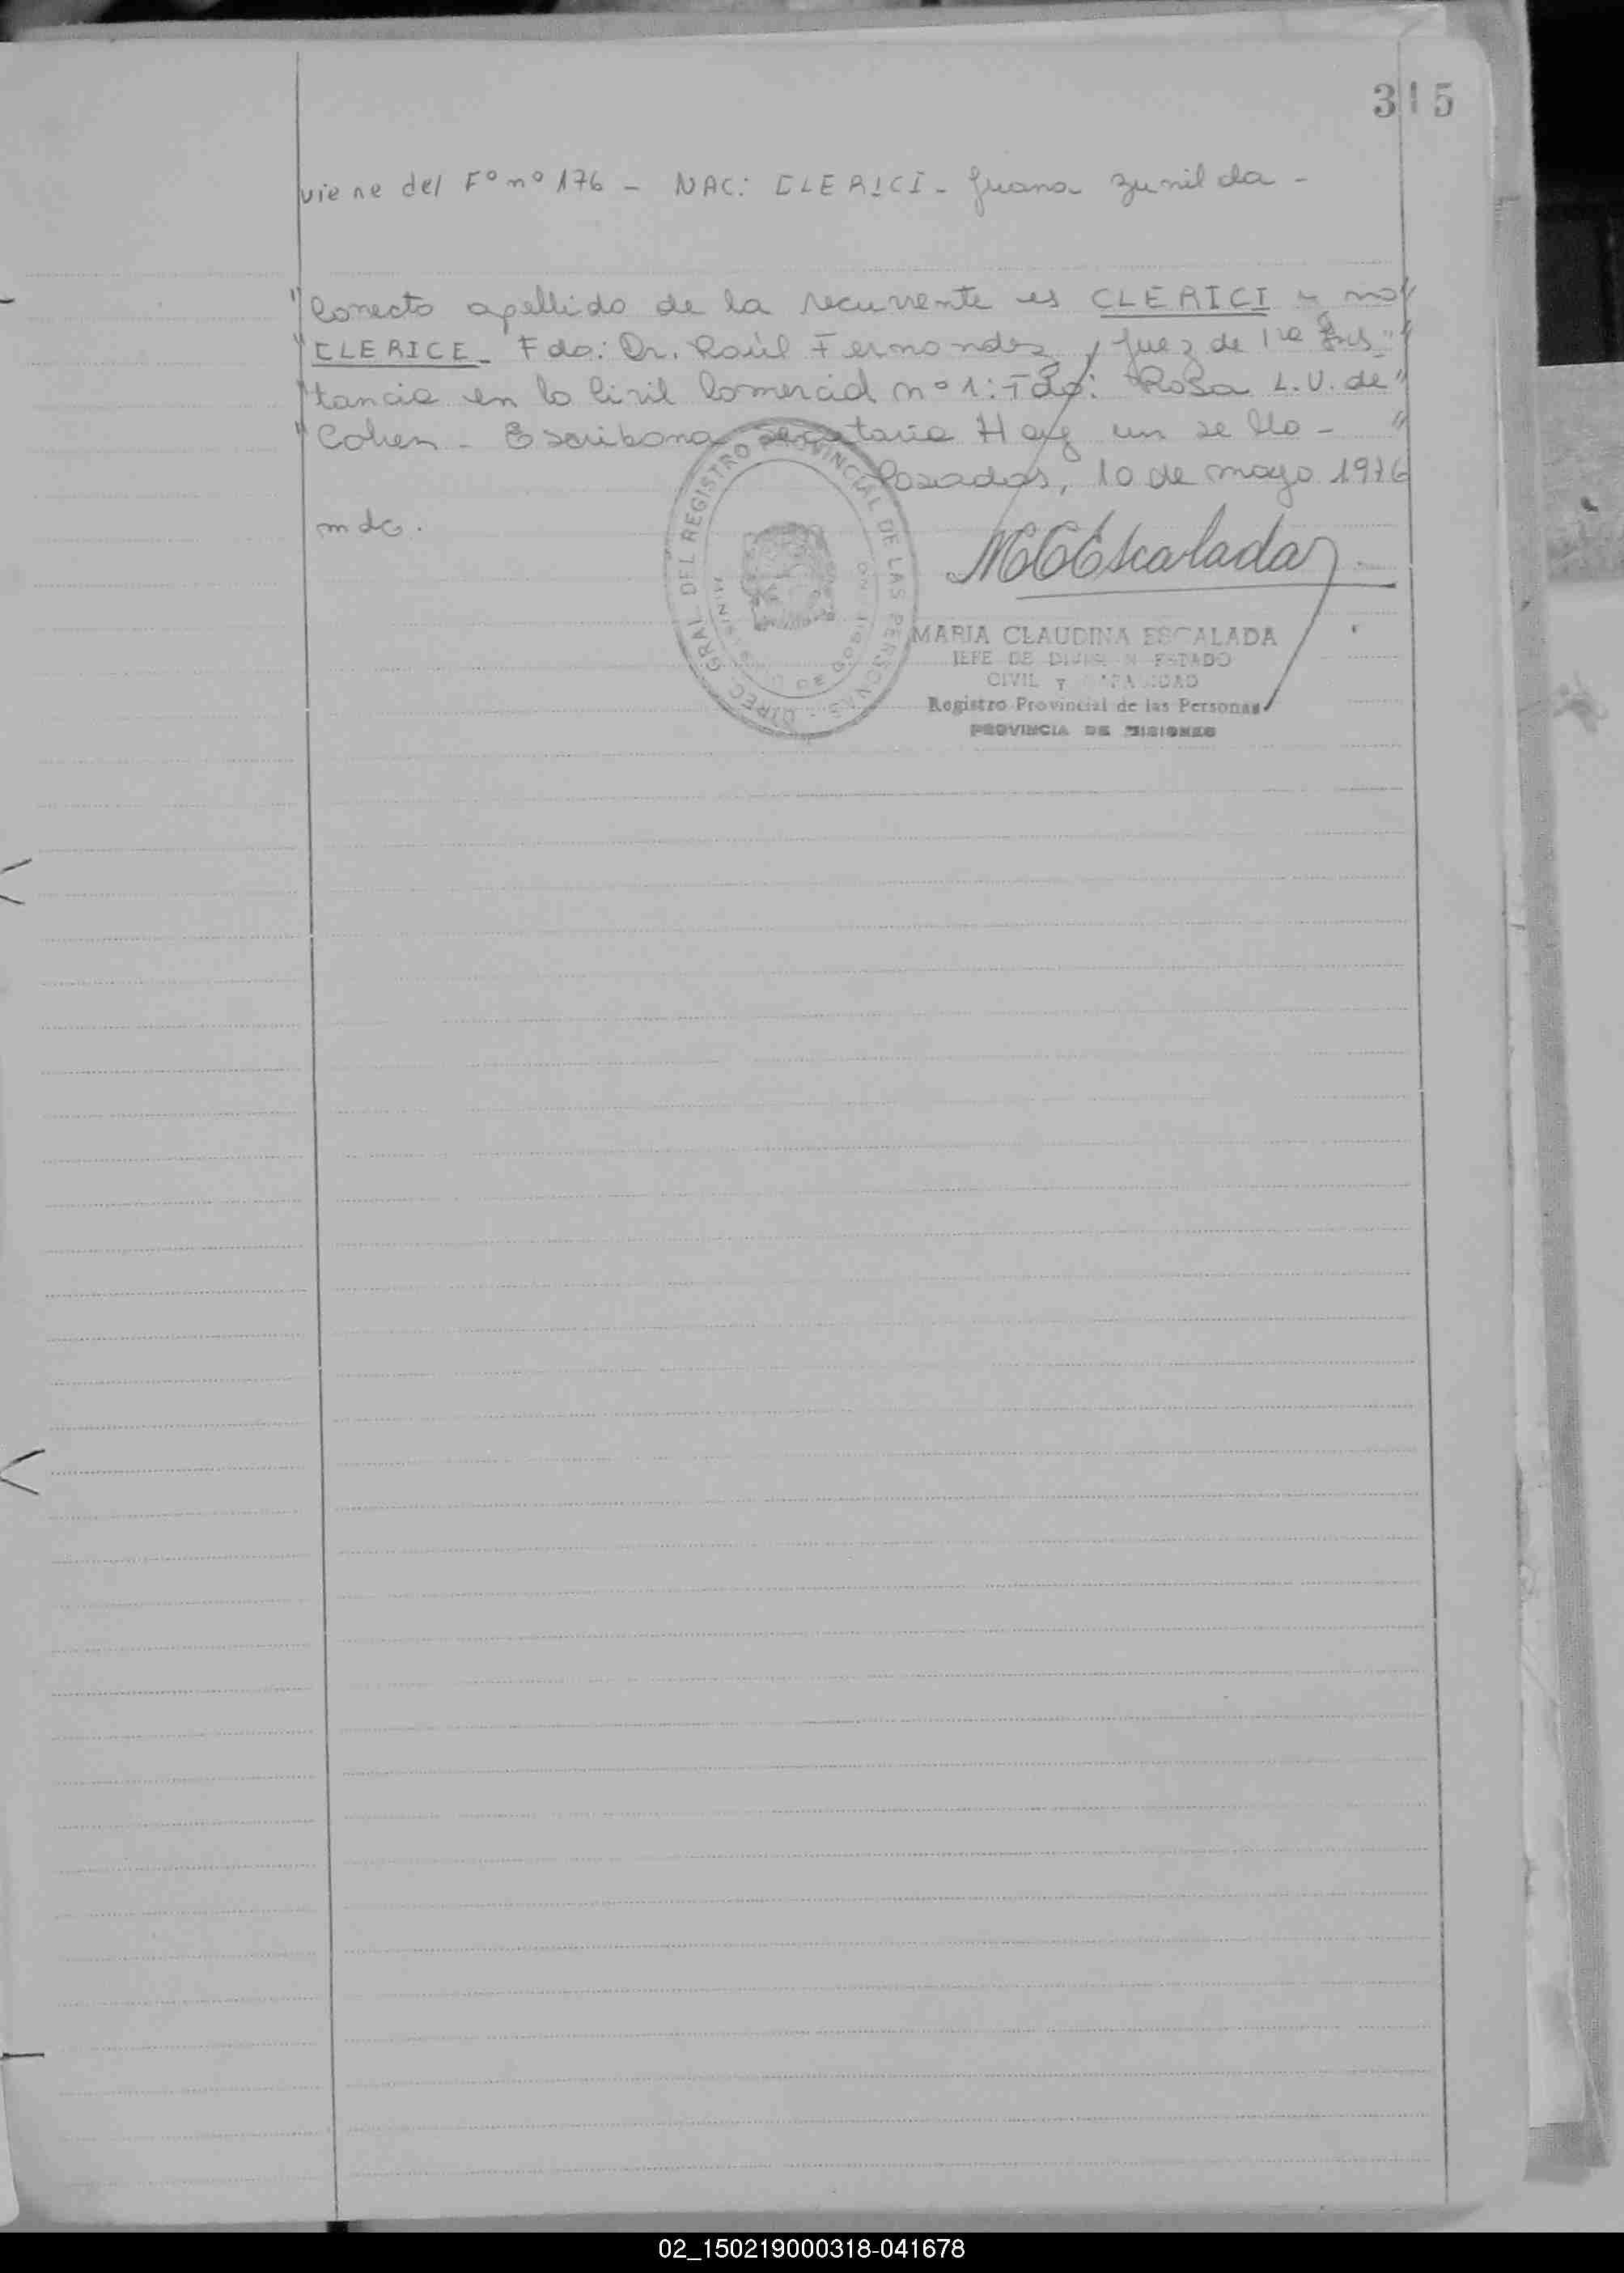 315
viene del Fº nº 176 - NAC: CLERICI - Juana Zunilda -
"Correcto apellido de la recurrente es CLERICI y no"
"CLERICE - Fdo: Dr. Raúl Fernandez, Juez de 1ra Ins-"
"tancia en lo Civil Comercial nº 1: Fdo: Rosa L.V. de"
"Cohen - Escribana Secretaria Hay un sello - "
Posadas, 10 de mayo 1976
mdc.
MCEscalada
DIREC. GRAL. DEL REGISTRO PROVINCIAL DE LAS PERSONAS
MARIA CLAUDINA ESCALADA
JEFE DE DIVISION ESTADO
CIVIL Y CAPACIDAD
Registro Provincial de las Personas
PROVINCIA DE MISIONES
02_150219000318-041678